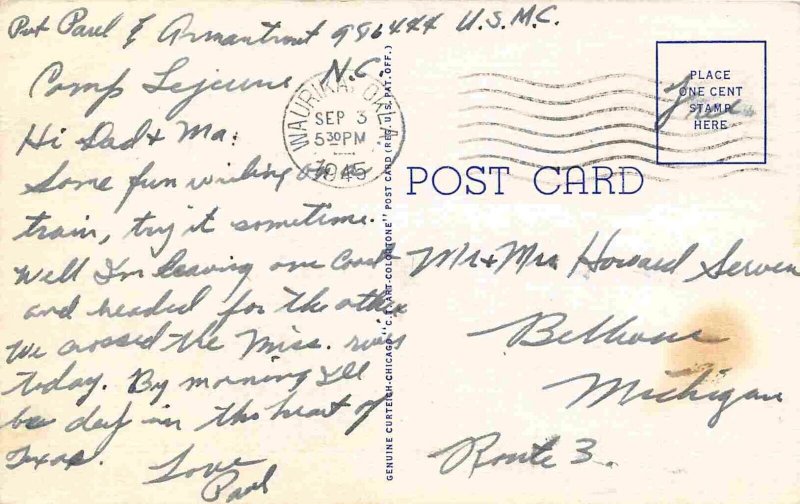 Pvt Paul E Armantrout 986444 U.S.M.C.
Camp Lejeune, N.C.
Hi Dad & Ma:
Some fun writing on a
train, try it sometime.
Well I'm leaving one Coast
and headed for the other
We crossed the Miss. river
today. By morning I'll
be deep in the heart of
Texas.
Love
Paul
WAURIKA, OKLA.
SEP 3
5 30 PM
1945
GENUINE CURTEICH-CHICAGO "C.T. ART-COLORTONE" POST CARD (REG. U.S. PAT. OFF.)
PLACE
ONE CENT
STAMP
HERE
Free
POST CARD
Mr & Mrs Howard Serven
Belleville
Michigan
Route 3.